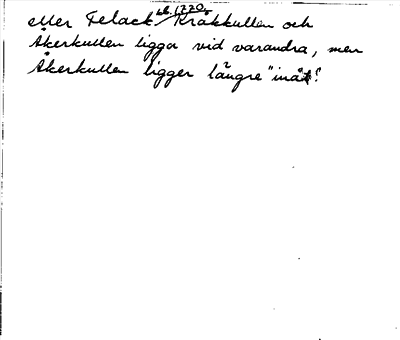 eller Felack Kråkkullen och
Åkerkullen ligga vid varandra, men
Åkerkullen ligger längre "inåt".